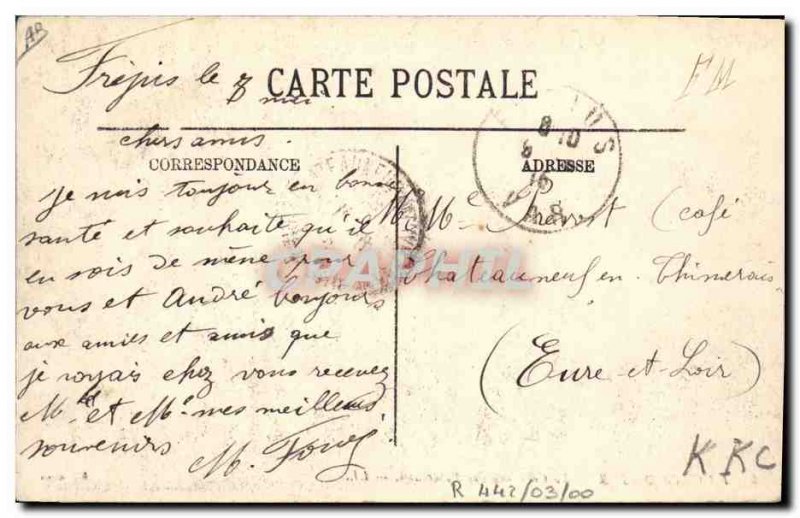 AB
Fréjus le 8
mai
CARTE POSTALE
FM
chers amis.
CORRESPONDANCE
ADRESSE
je suis toujour en bonne
santé et souhaite qu'il
en sois de même pour
vous et André bonjours
aux amies et amis que
je voyais chez vous recevez
Mr et Me mes meilleurs
souvenirs
M.
M Me (café
Chateauneuf en Thimerais
(Eure-et-Loir)
CPAPHIL
KKC
R 442/03/00